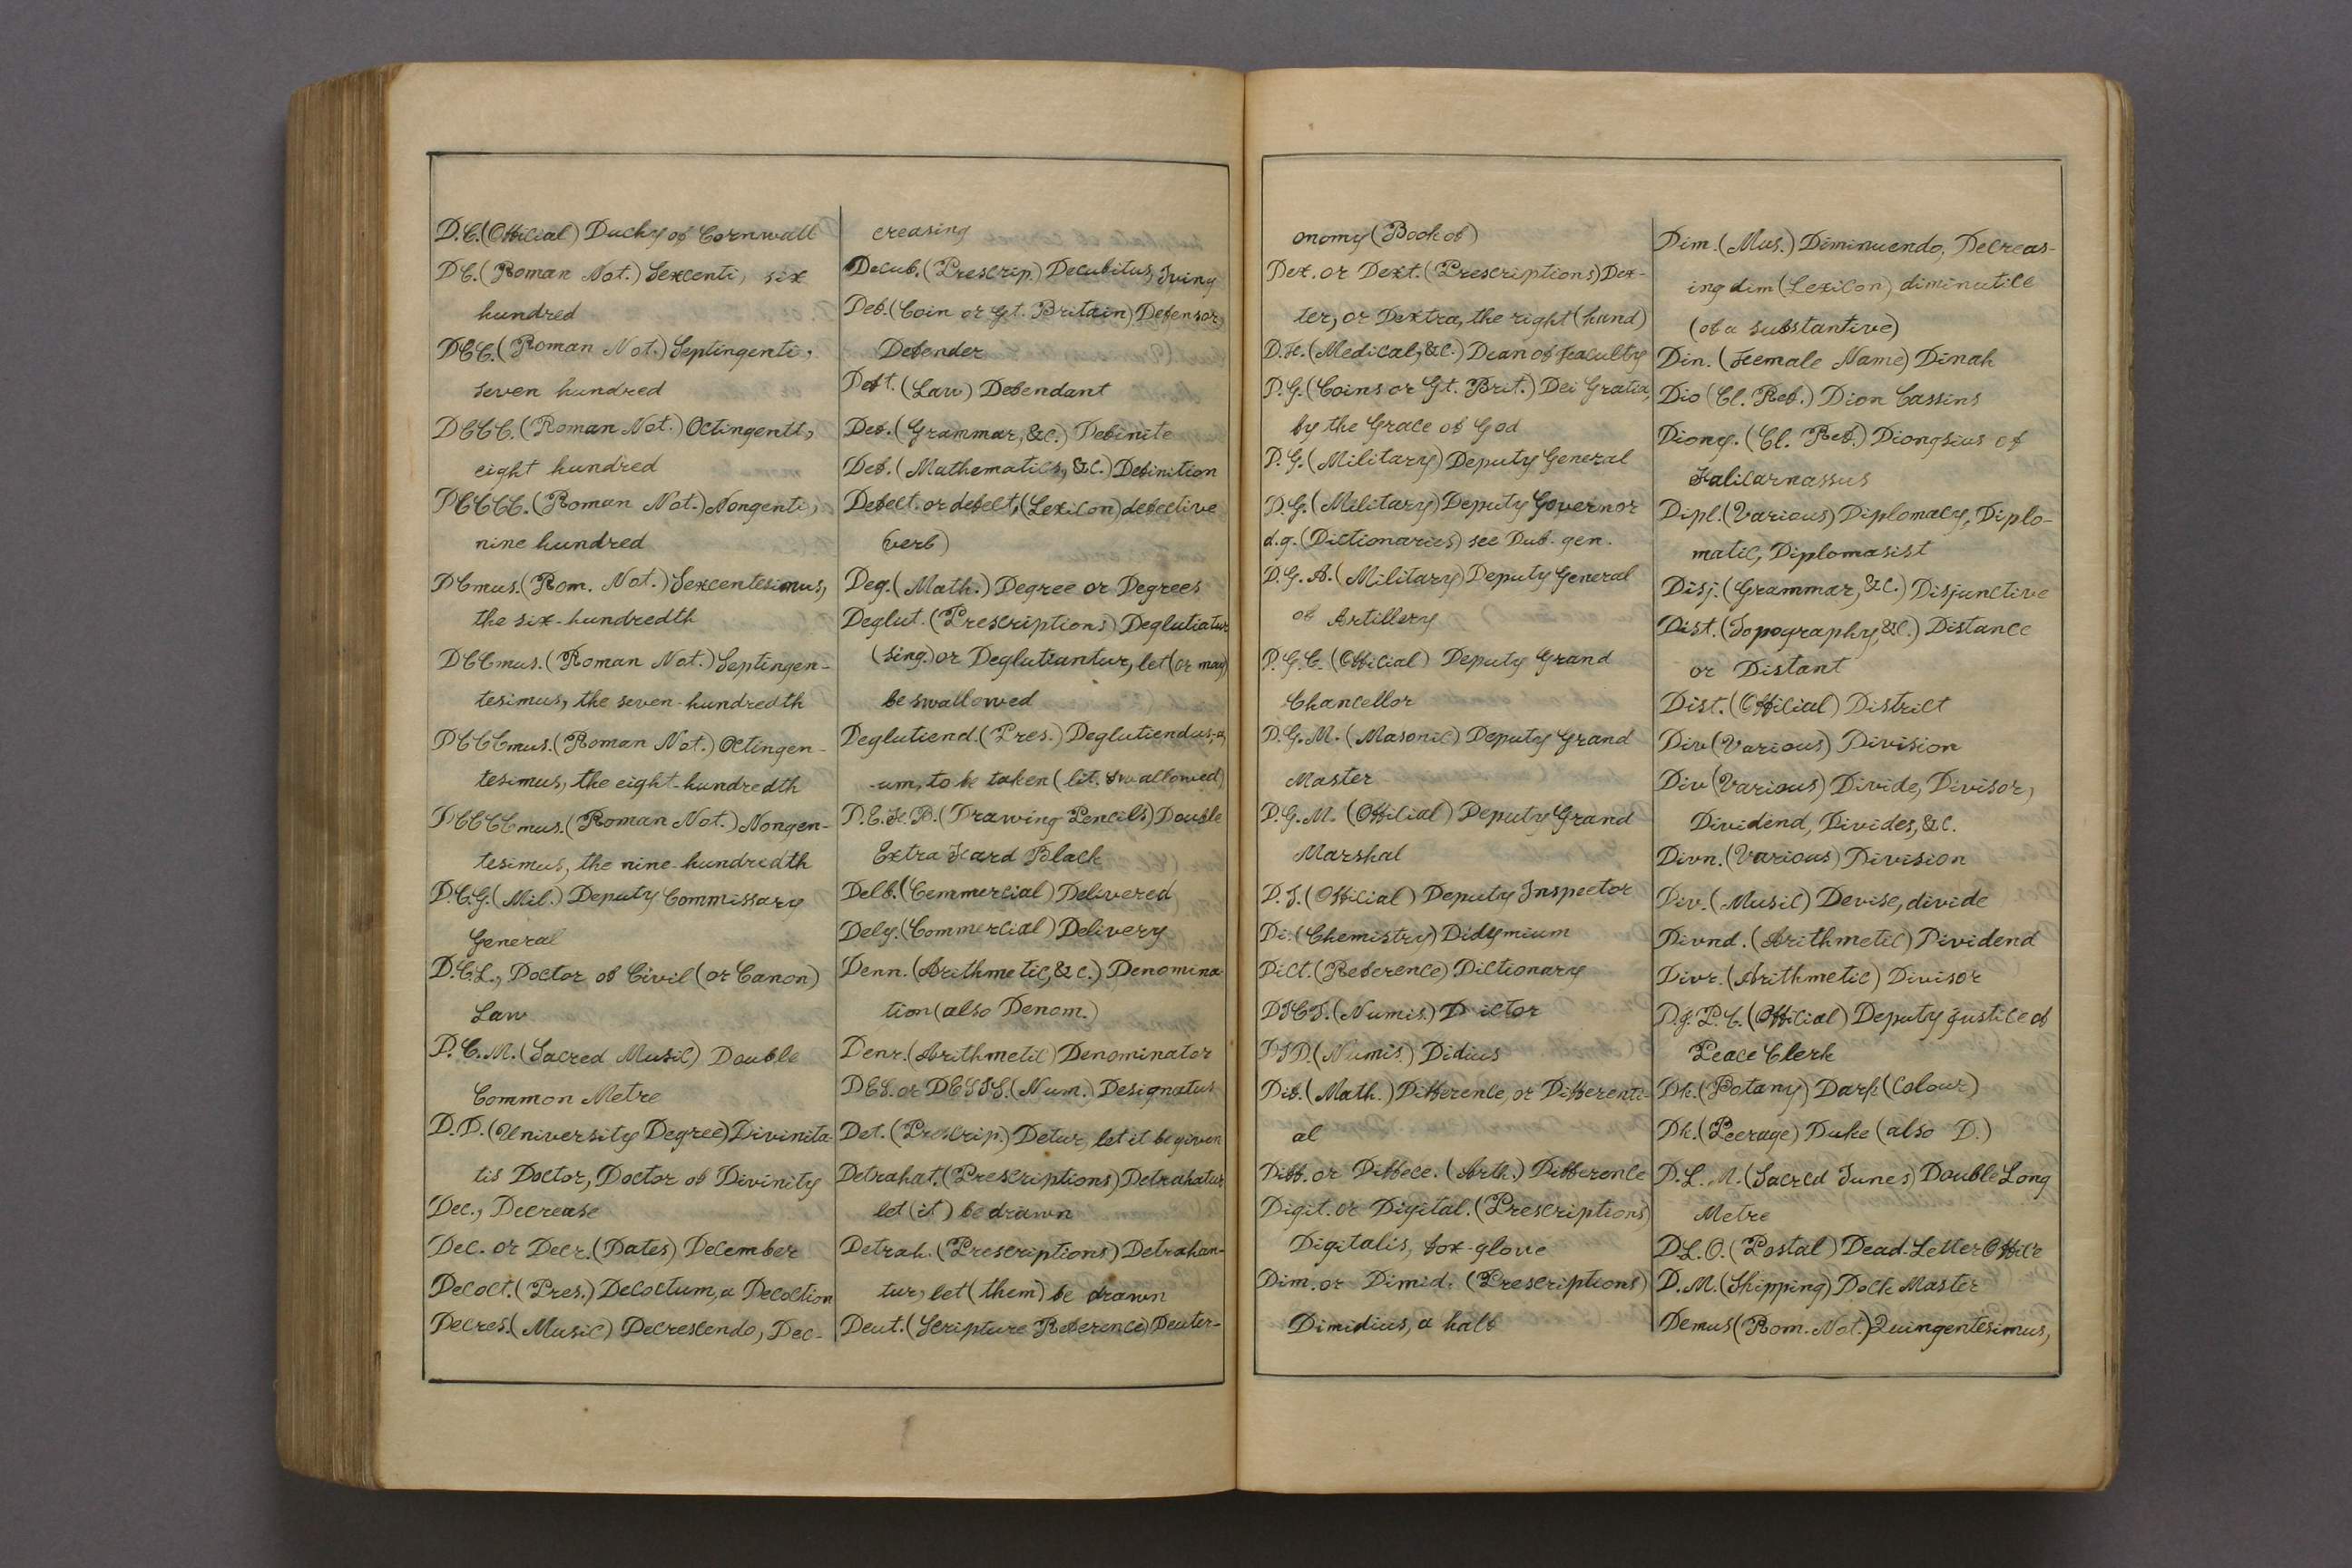 D.C. (Official) Duchy of Cornwall
DC. (Roman Not.) Sexcenti, six
hundred
DCC. (Roman Not.) Septingenti,
seven hundred
DCCC. (Roman Not.) Octingenti,
eight hundred
DCCCC. (Roman Not.) Nongenti,
nine hundred
DCmus. (Rom. Not.) Sexcentesimus,
the six-hundredth
DCCmus. (Roman Not.) Septingen-
tesimus, the seven-hundredth
DCCCmus. (Roman Not.) Octingen-
tesimus, the eight-hundredth
DCCCCmus. (Roman Not.) Nongen-
tesimus, the nine-hundredth
D.C.G. (Mil.) Deputy Commissary
General
D.C.L., Doctor of Civil (or Canon)
Law
D.C.M. (Sacred Music) Double
Common Metre
D.D. (University Degree) Divinita-
tis Doctor, Doctor of Divinity
Dec., Decrease
Dec. or Decr. (Dates) December
Decoct. (Pres.) Decoctum, a Decoction
Decres. (Music) Decrescendo, Dec-
creasing
Decub. (Prescrip.) Decubitus, lying
Def. (Coin or Gt. Britain) Defensor,
Defender
Deft. (Law) Defendant
Def. (Grammar, &c.) Definite
Def. (Mathematics, &c.) Definition
Defect. or defect, (Lexicon) defective
(verb)
Deg. (Math.) Degree or Degrees
Deglut. (Prescriptions) Deglutiatur
(sing.) or Deglutiantur, let (or may)
be swallowed
Deglutiend. (Pres.) Deglutiendus, -a,
-um, to be taken (lit. swallowed)
D.E.H.B. (Drawing Pencils) Double
Extra Hard Black
Delb. (Commercial) Delivered
Dely. (Commercial) Delivery
Denn. (Arithmetic, &c.) Denomina-
tion (also Denom.)
Denr. (Arithmetic) Denominator
DES. or DESIS. (Num.) Designatus
Det. (Prescrip.) Detur, let it be given
Detrahat. (Prescriptions) Detrahatur
let (it) be drawn
Detrah. (Prescriptions) Detrahan-
tur, let (them) be drawn
Deut. (Scripture Reference) Deuter-
onomy (Book of)
Dex. or Dext. (Prescriptions) Dex-
ter, or Dextra, the right (hand)
D.F. (Medical, &c.) Dean of Faculty
D.G. (Coins or Gt. Brit.) Dei Gratia,
by the Grace of God
D.G. (Military) Deputy General
D.G. (Military) Deputy Governor
d.g. (Dictionaries) see Dub. gen.
D.G.A. (Military) Deputy General
of Artillery
D.G.C. (Official) Deputy Grand
Chancellor
D.G.M. (Masonic) Deputy Grand
Master
D.G.M. (Official) Deputy Grand
Marshal
D.I. (Official) Deputy Inspector
Di. (Chemistry) Didymium
Dict. (Reference) Dictionary
DICT. (Numis.) Dictor
DID. (Numis.) Didius
Dif. (Math.) Difference, or Differenti-
al
Diff. or Diffece. (Arth.) Difference
Digit. or Digital. (Prescriptions)
Digitalis, fox-glove
Dim. or Dimid. (Prescriptions)
Dimidius, a half
Dim. (Mus.) Diminuendo, Decreas-
ing dim (Lexicon) diminutice
(of a substantive)
Din. (Female Name) Dinah
Dio (Cl. Ref.) Dion Cassins
Diony. (Cl. Ref.) Dionysius of
Halicarnassus
Dipl. (Various) Diplomacy, Diplo-
matic, Diplomasist
Disj. (Grammar, &c.) Disjunctive
Dist. (Topography, &c.) Distance
or Distant
Dist. (Official) District
Div (Various) Division
Div (Various) Divide, Divisor,
Dividend, Divides, &c.
Divn. (Various) Division
Div. (Music) Devise, divide
Divnd. (Arithmetic) Dividend
Divr. (Arithmetic) Divisor
D.J.P.C. (Official) Deputy Justice of
Peace Clerk
Dk. (Botany) Dark (Colour)
Dk. (Peerage) Duke (also D.)
D.L.M. (Sacred Tunes) Double Long
Metre
D.L.O. (Postal) Dead-Letter Office
D.M. (Shipping) Dock Master
Demus (Rom. Not.) Quingentesimus,